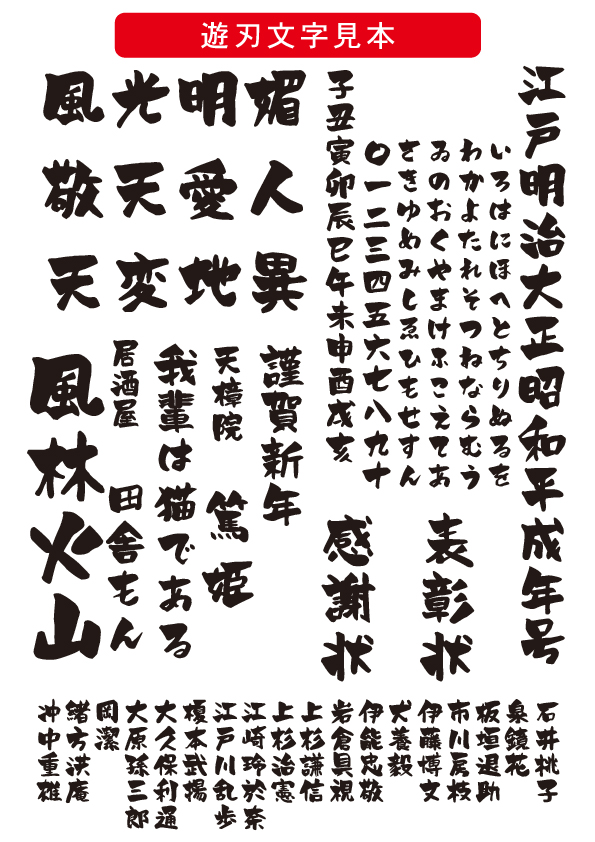 遊刃文字見本
江戸明治大正昭和平成年号
いろはにほへとちりぬるを
わかよたれそつねならむう
ゐのおくやまけふこえてあ
さきゆめみしゑひもせすん
〇一二三四五六七八九十
子丑寅卯辰巳午未申酉戌亥
表彰状
感謝状
媚人異
明愛地
光天変
風敬天
謹賀新年
天樟院
篤姫
我輩は猫である
居酒屋
田舎もん
風林火山
石井桃子
泉鏡花
板垣退助
市川房枝
伊藤博文
犬養毅
伊能忠敬
岩倉具視
上杉謙信
上杉治憲
江崎玲於奈
江戸川乱歩
榎本武揚
大久保利通
大原孫三郎
岡潔
緒方洪庵
沖中重雄